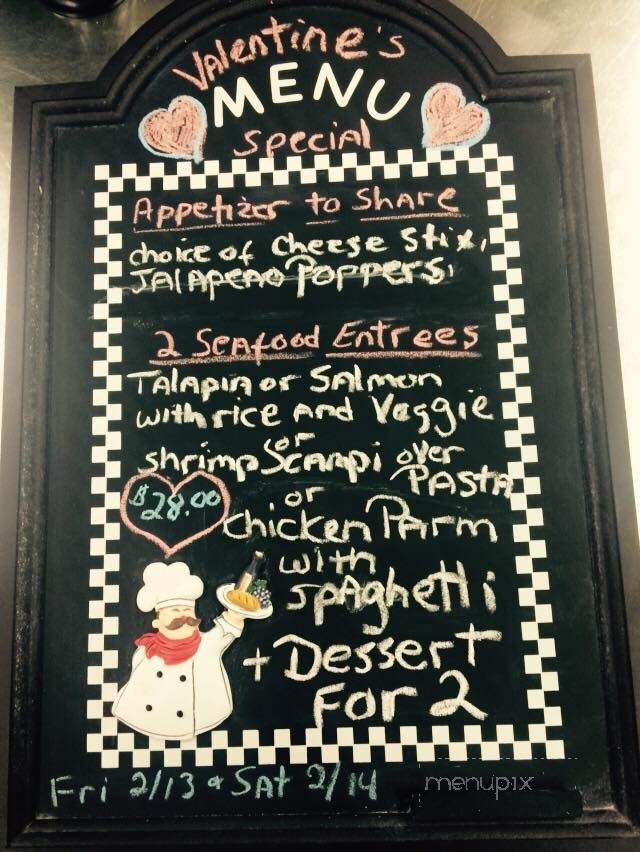 Valentine's
MENU
Special
Appetizer to Share
choice of Cheese Stix,
JAlApeno Poppers,
2 Seafood Entrees
TAlApia or SAlmon
with rice And Veggie
or
shrimp Scampi over
PASTA
or
$28.00
Chicken Parm
with
spAghetti
+ Dessert
For 2
Fri 2/13 & SAt 2/14
menupix